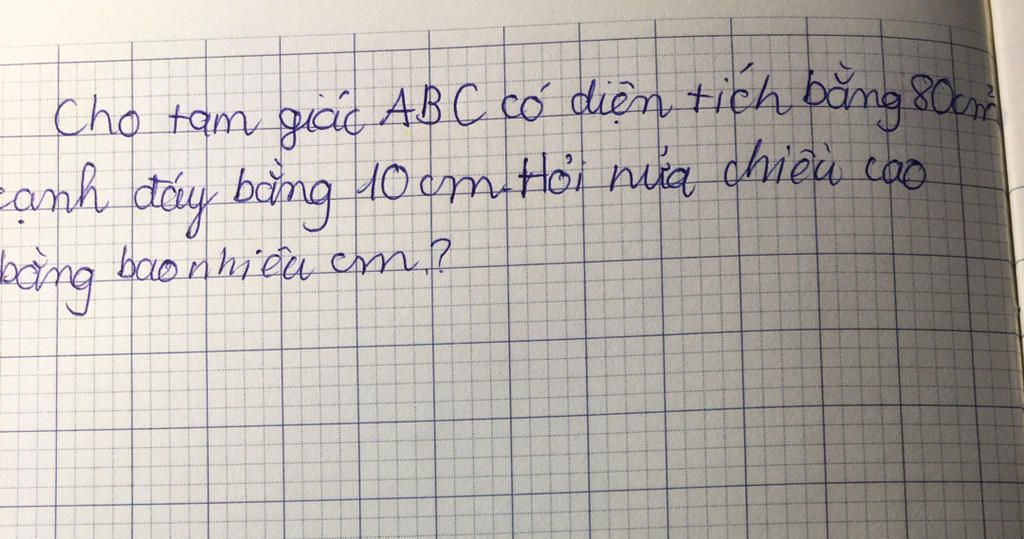 Cho tam giác ABC có diện tích bằng 80cm²
cạnh đáy bằng 10 cm. Hỏi nửa chiều cao
bằng bao nhiêu cm.?